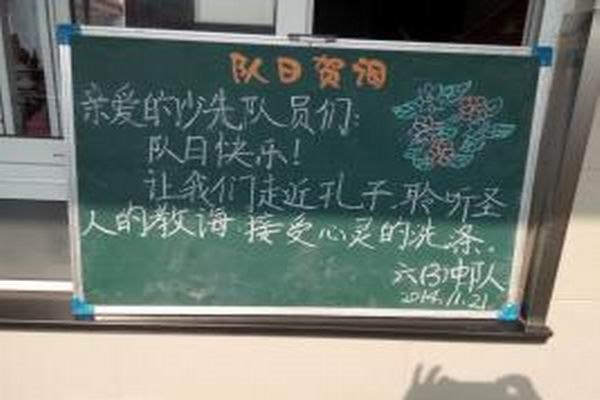 队日贺词
亲爱的少先队员们:
队日快乐!
让我们走近孔子,聆听圣
人的教诲,接受心灵的洗涤。
六(3)中队
2014.11.21